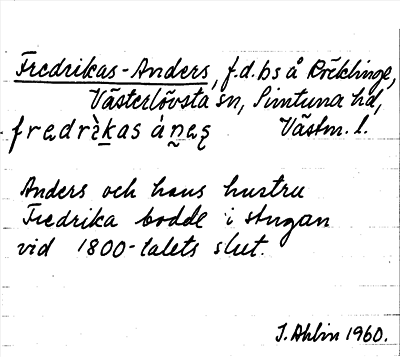 Fredrikas-Anders, f.d. bs å Röcklinge,
Västerlövsta sn, Simtuna hd,
fredrìkas ánas Västm. l.
Anders och hans hustru
Fredrika bodde i stugan
vid 1800-talets slut.
J. Ahlin 1960.